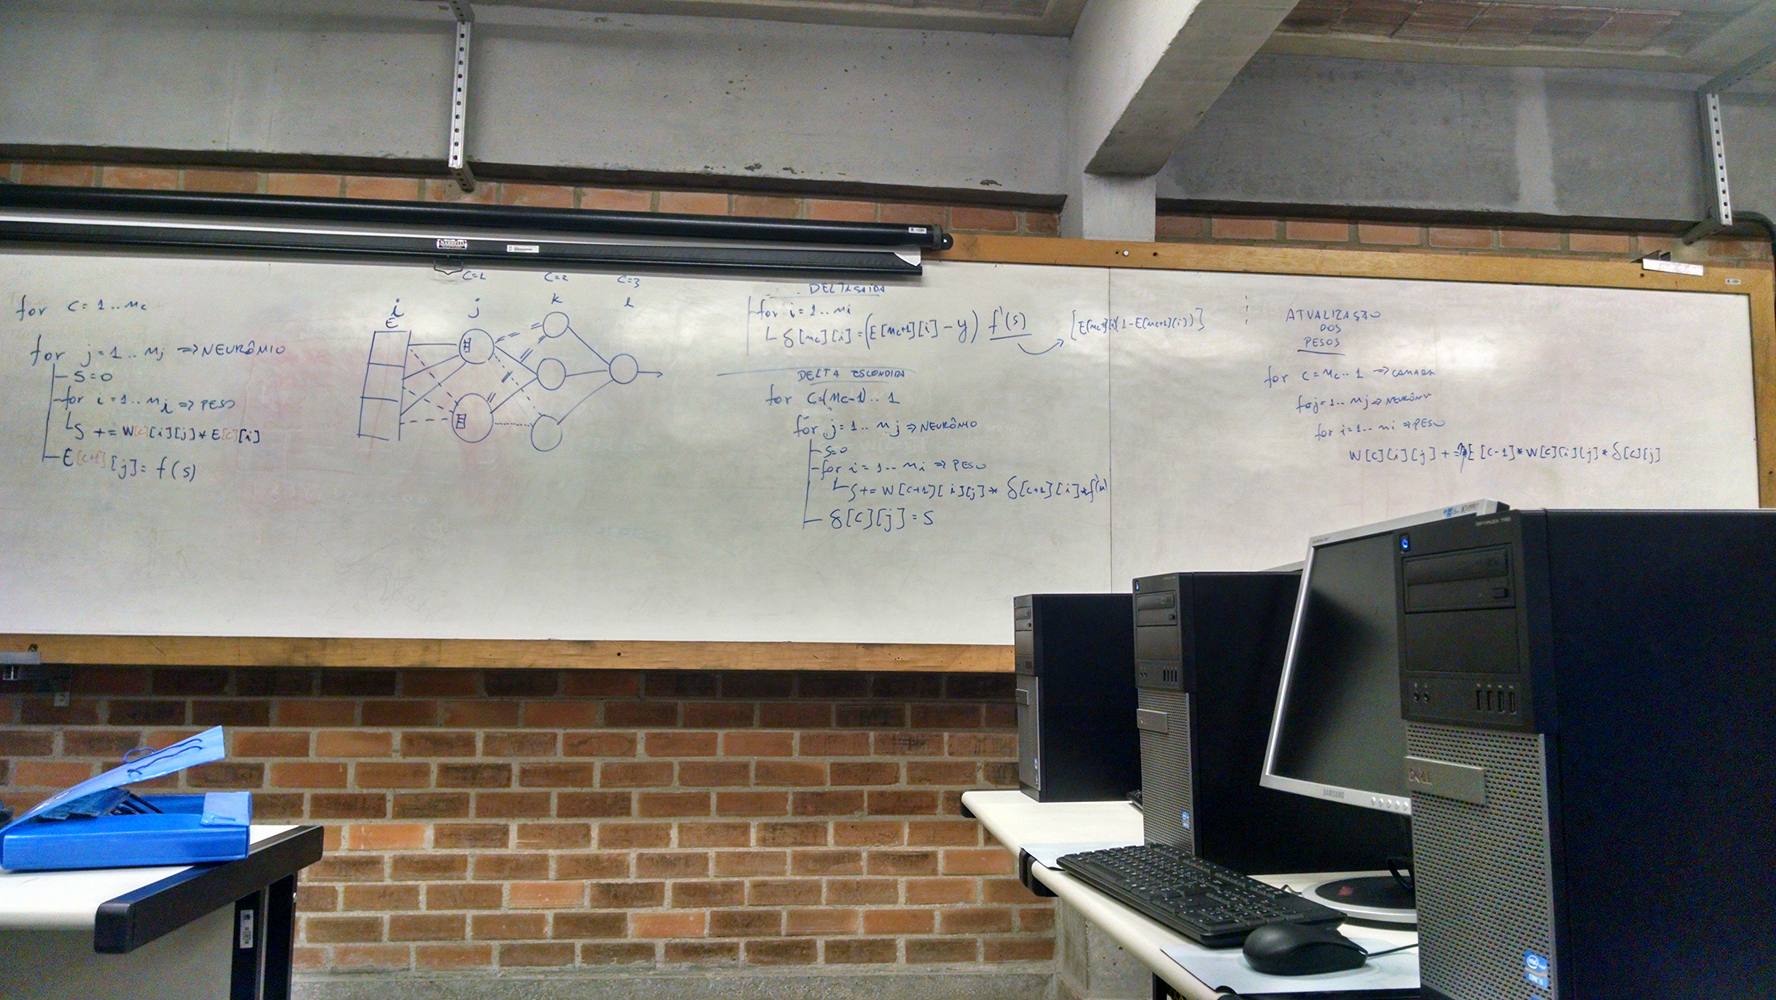 for C = 1..nc
for j=1..nj => NEURÔNIO
S=0
for i=1..ni => PESO
S += W[c][i][j]*E[c][i]
E[c+1][j]= f(s)
C=1 C=2 C=3
i j k l
E
DELTA SAIDA
for i=1..ni
δ[nc][i]=(E[nc+1][i]-y) f'(s) [E[nc+1][i](1-E[nc+1](i))]
DELTA ESCONDIDA
for C=(nc-1)..1
for j=1..nj => NEURÔNIO
S=0
for i=1...ni => PESO
S+= W[c+1][i][j]* δ[c+1][i]*f'(s)
δ[c][j]=S
ATUALIZAÇÃO
DOS
PESOS
for C=nc..1 => CAMADA
for j=1..nj => NEURÔNIO
for i=1...ni => PESO
W[c][i][j] += E[c-1]*W[c][i][j]*δ[c][j]
SAMSUNG
DELL